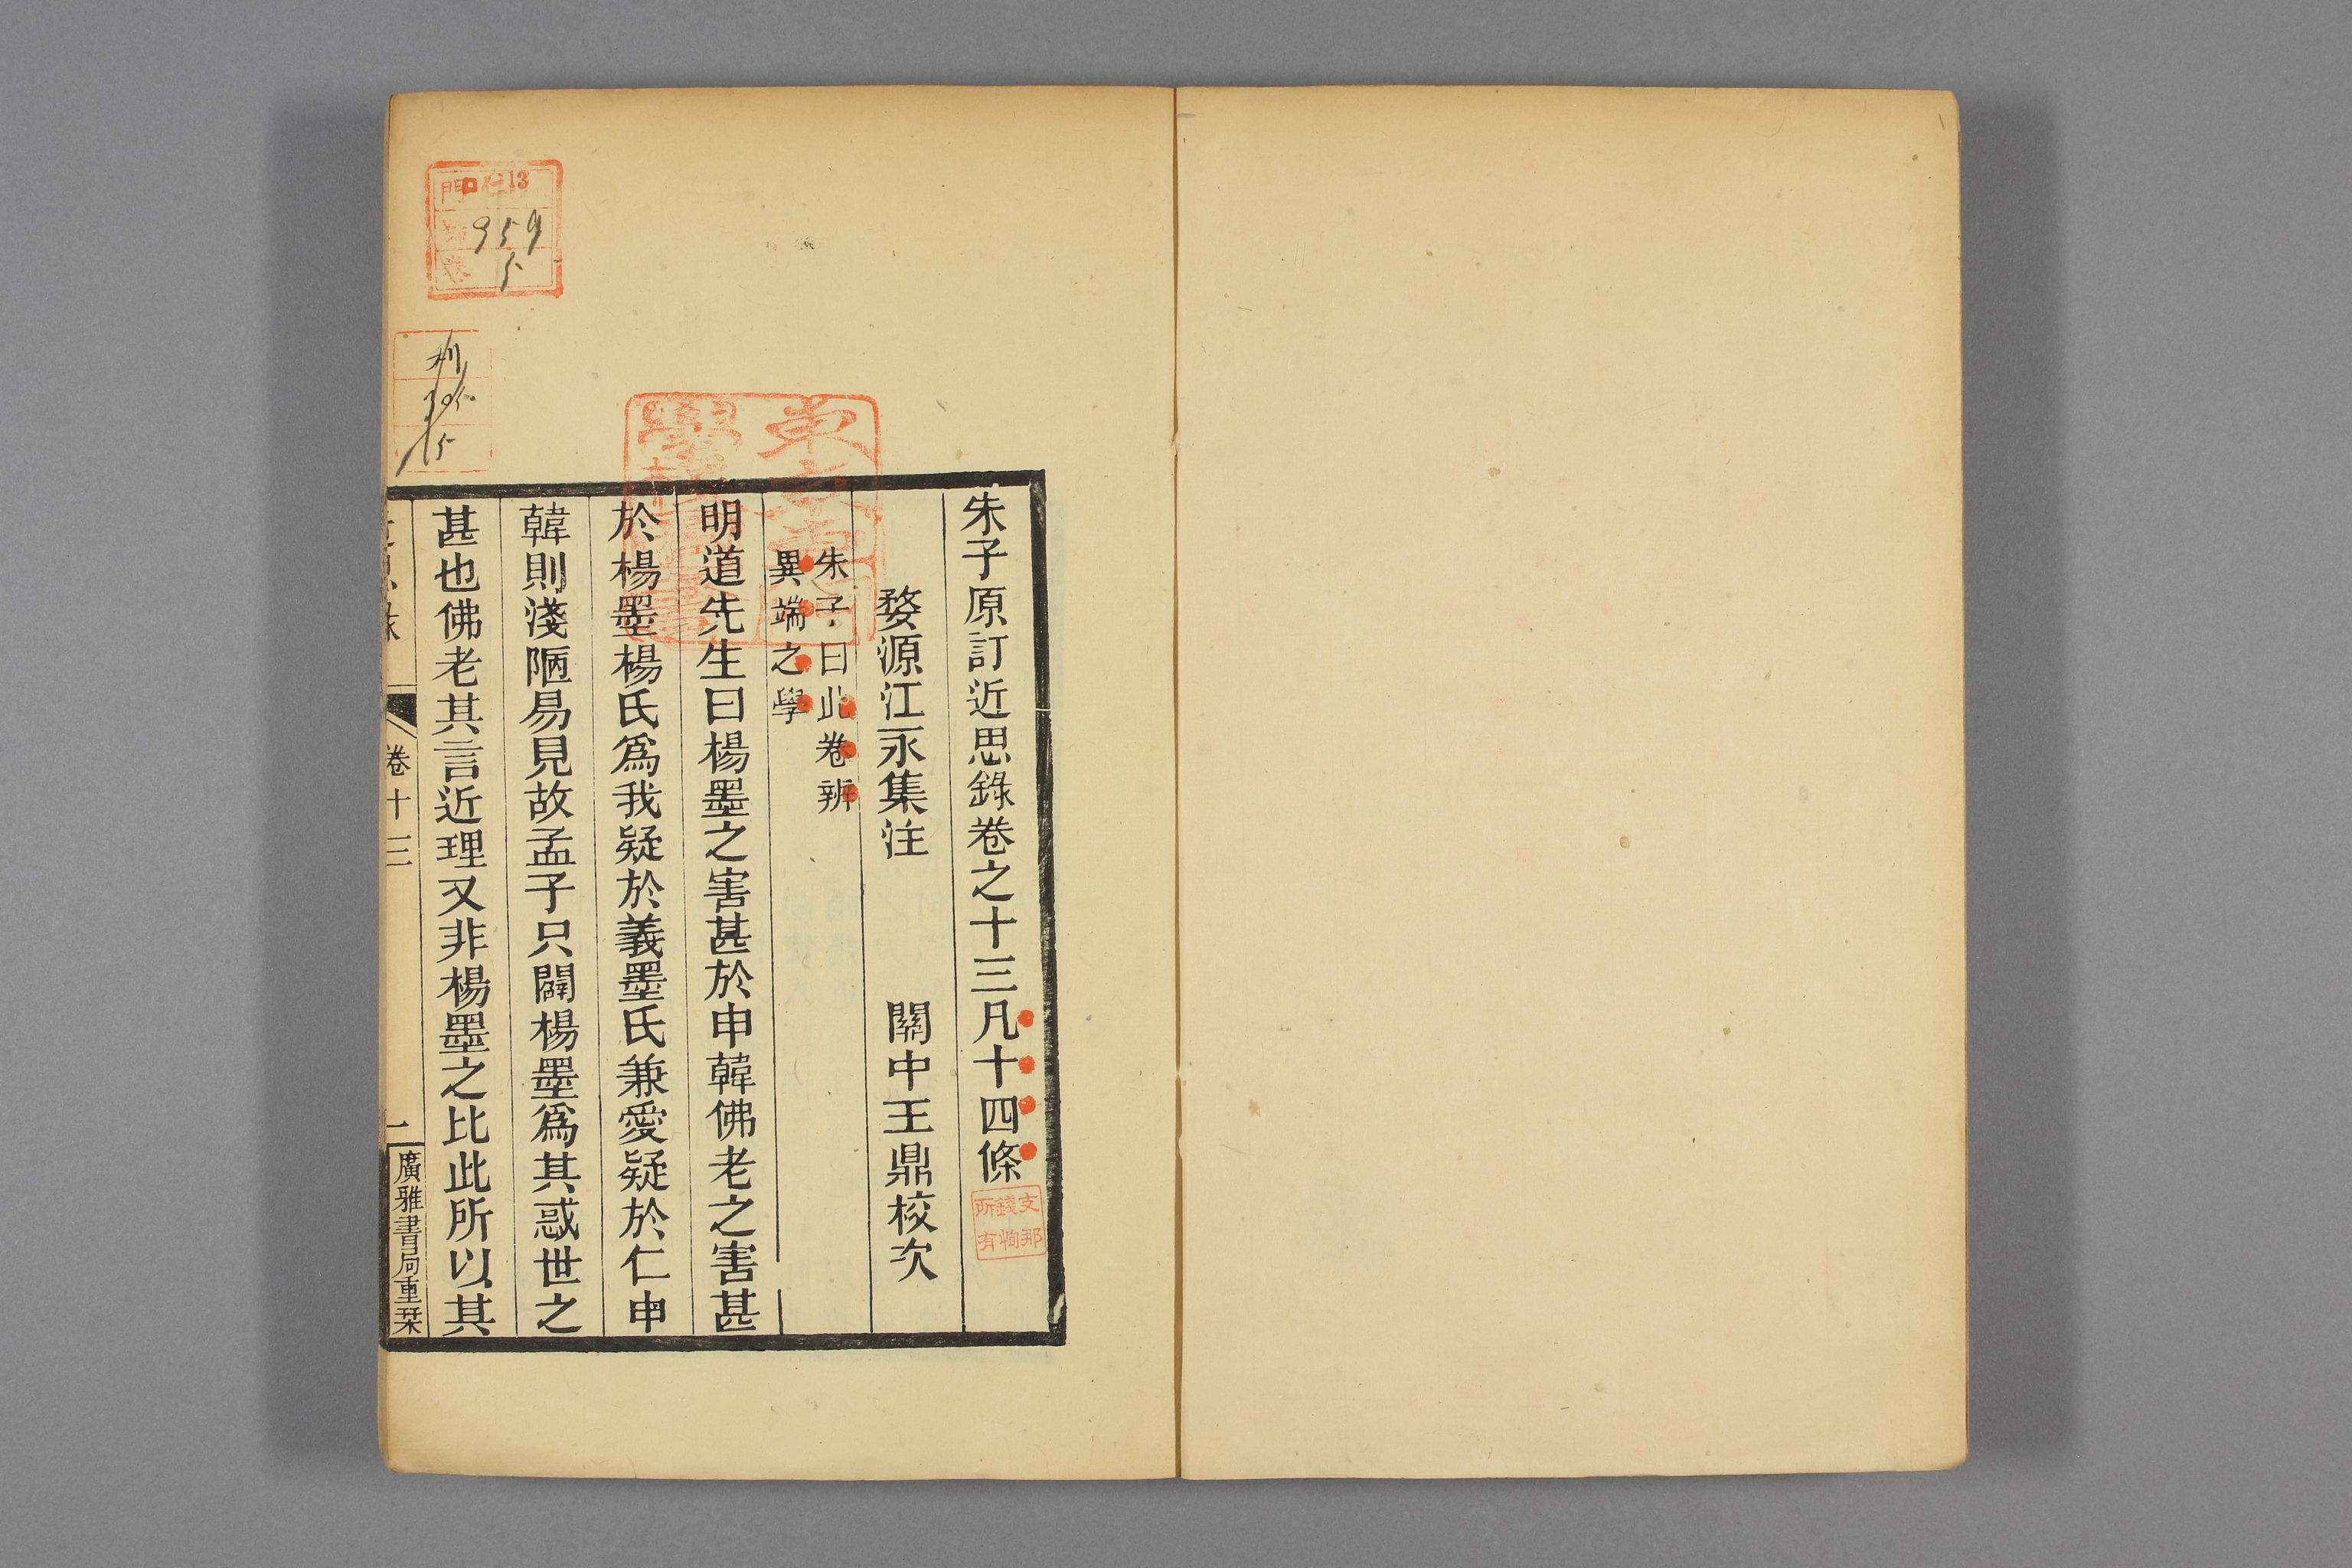 朱子原訂近思錄卷之十三凡十四條
婺源江永集注　關中王鼎校次
朱子曰此卷辨
異端之學
明道先生曰楊墨之害甚於申韓佛老之害甚
於楊墨楊氏爲我疑於義墨氏兼愛疑於仁申
韓則淺陋易見故孟子只闢楊墨爲其惑世之
甚也佛老其言近理又非楊墨之比此所以其
卷十三
一
廣雅書局重栞
支那
錢恂
所有
門 13
959
5